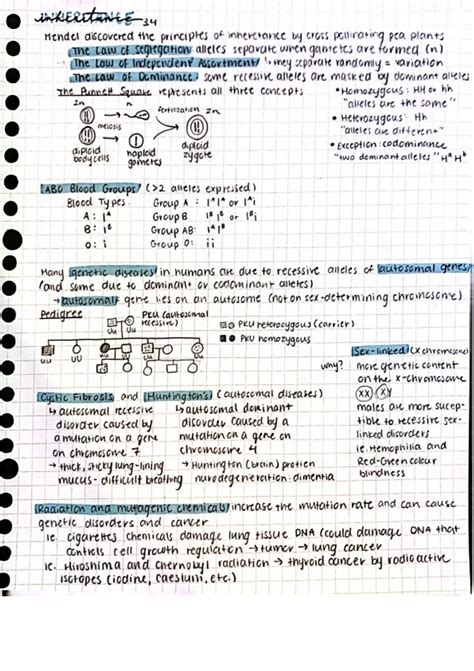 INHERITANCE 3.4
Mendel discovered the principles of inheretance by cross pollinating pea plants
The Law of Segregation alleles separate when gametes are formed (n)
The Law of Independent Assortment ↳ they separate randomly = variation
The Law of Dominance some recessive alleles are masked by dominant alleles
The Punnett Square represents all three concepts
• Homozygous: HH or hh
"alleles are the same"
• Heterozygous: Hh
"alleles are different"
• Exception: codominance
"two dominant alleles" Hᴬ Hᵇ
2n n fertilization 2n
meiosis
diploid body cells
haploid gametes
diploid zygote
ABO Blood Groups (>2 alleles expressed)
Blood Types Group A : IᴬIᴬ or Iᴬi
A: Iᴬ Group B IᴮIᴮ or Iᴮi
B: Iᴮ Group AB: IᴬIᴮ
O: i Group O: ii
Many genetic diseases in humans are due to recessive alleles of autosomal genes
(and some due to dominant or codominant alleles)
→ autosomal: gene lies on an autosome (not on sex-determining chromosome)
Pedigree
PKU (autosomal recessive)
Uu Uu
PKU heterozygous (carrier)
PKU homozygous
uu UU uu Uu
Sex-linked (X chromosome)
why? more genetic content
on the X-chromosome
XX XY
males are more sucep-
tible to recessive sex-
linked disorders
ie. Hemophilia and
Red-Green colour
blindness
Cystic Fibrosis and Huntington's (autosomal diseases)
↳ autosomal recessive
disorder caused by
a mutation on a gene
on chromosome 7
→ thick, sticky lung-lining
mucus - difficult breathing
↳ autosomal dominant
disorder caused by a
mutation on a gene on
chromosome 4
→ Huntington (brain) protien
nurodegeneration: dimentia
Radiation and mutagenic chemicals increase the mutation rate and can cause
genetic disorders and cancer
ie. cigarettes chemicals damage lung tissue DNA (could damage DNA that
controls cell growth regulation → tumor → lung cancer
ie. Hiroshima and Chernobyl radiation → thyroid cancer by radioactive
isotopes (iodine, caesium, etc.)